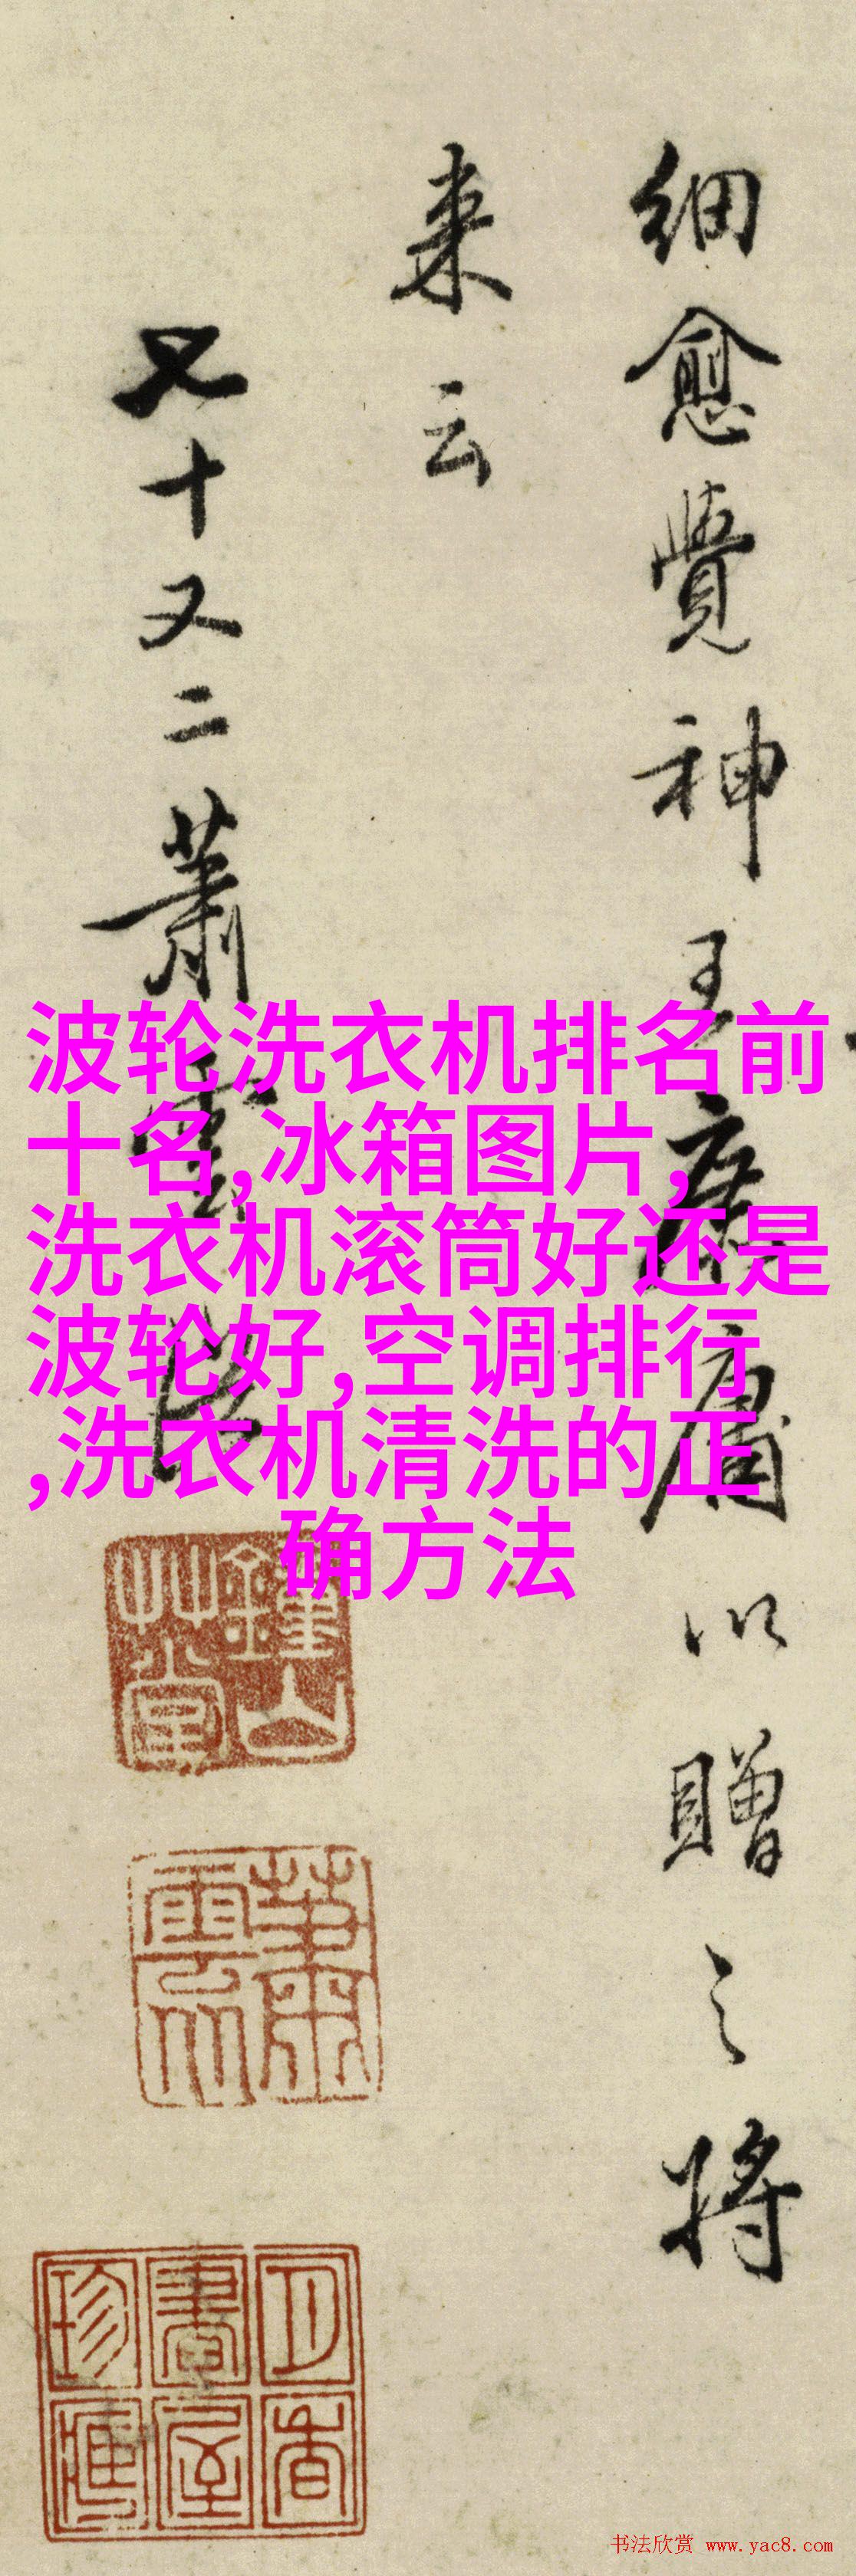 細愈覺神王康庸以贈之將
来云
七十又二蕭雲從
波轮洗衣机排名前
十名,冰箱图片,
洗衣机滚筒好还是
波轮好,空调排行
,洗衣机清洗的正
确方法
鍾山艸堂
蕭雲从
书法欣赏 www.yac8.com